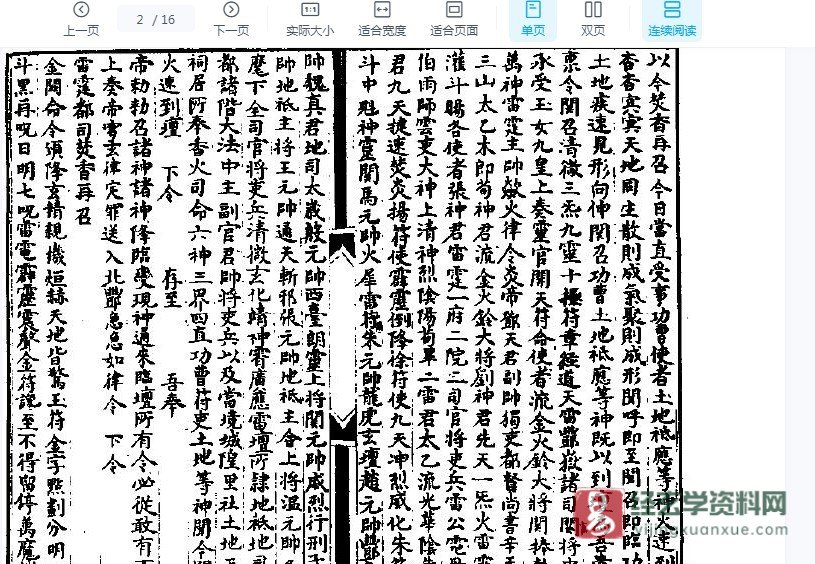 上一页
2 / 16
下一页
实际大小
适合宽度
适合页面
单页
双页
连续阅读
以今焚香再召今日當直受事功曹使者土地祗應等火速到
杳杳冥冥天地同生散則成氣聚則成形聞呼即至聞召即臨功
土地疾速見形向伸聞召功曹土地祗應等神既以到
稟令聞召清微三炁九靈十極符章經道天雷嶽諸司
承受玉女九皇上奏靈官開天符命使者流金火鈴大將
萬神雷霆主帥欻火律令炎帝鄧天君副帥獨吏都督尚書辛天
三山太乙木郎苟神君流金火鈴大將劉神君先天一炁火雷
灌斗賜谷使者張神君雷霆一府二院三司官將吏兵雷公電母
伯雨師雲吏大神上清神烈陰陽荀畢二雷君太乙流光華陰
君九天捷速焚炎揚符使霹靂倒降徐符使九天冲烈威化朱符
斗中魁神靈關馬元帥火犀雷府朱元帥龍虎玄壇趙元帥酆
帥魏真君地司太歲殷元帥西臺朗靈上將關元帥威烈行刑
帥地祇主將王元帥通天斬邪張元帥地祇主會上將溫元帥
麾下全司官將吏兵清微玄北靖神霄廣應雷壇所隸地祇地司
都諸階大法中主副官君帥將吏兵以及當境城隍里社土地
祠居所奉香火司命六神三界四直功曹符吏土地等神聞今
火速到壇 下令 存至 吾奉
帝勅勅召諸神諸神降臨變現神通來臨壇所有令必從敢有
上奏帝雪玄律定罪送入北酆急急如律令 下令
雷霆都司焚香再召
金闕命令須降玄靖親攝烜赫天地皆驚玉符金字㸃劃分明
斗黑再呪日明七呪雷電霹靂震聲金符謹至不得留停萬魔
经玄学资料网
yijingxuanxue.com